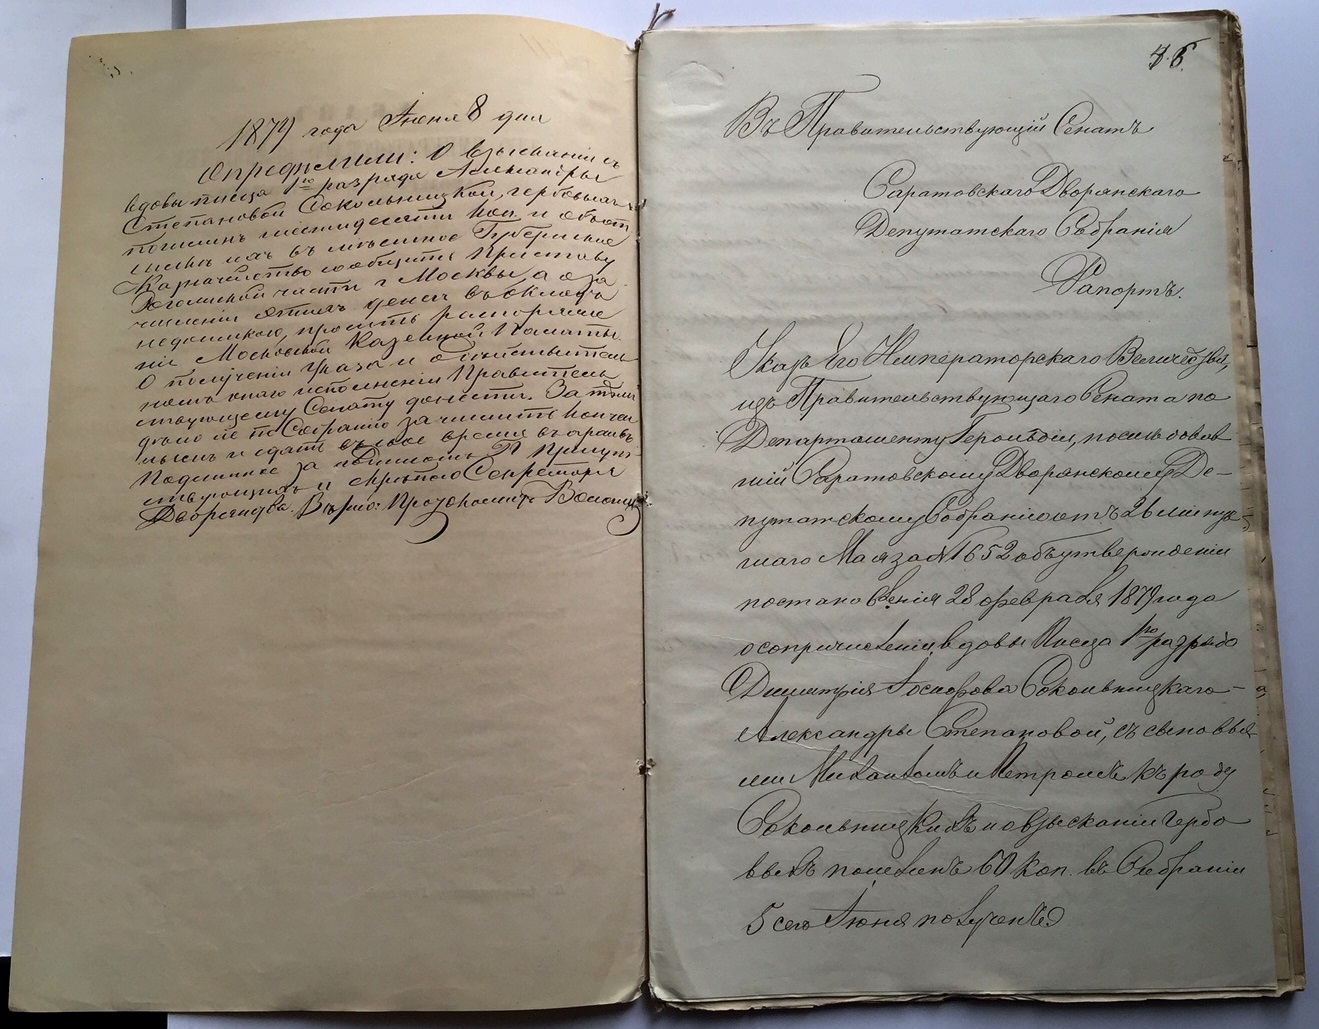 1879 года Июня 8 дня
Определили: О взысканіи съ
вдовы писца 1го разряда Александры
Степановой Сокольницкой, гербовыхъ
пошлинъ шестидесяти коп. и объ от
сылкѣ ихъ въ мѣстное Губернское
Казначейство сообщить Приставу
Рогожской части г Москвы, а о за
численіи этихъ денегъ въ окладъ
недоимкою, просить распоряже
нія Московской Казенной Палаты.
О получении указа и о дѣйствитель
номъ исполненіи Правитель
ствующему Сенату донести. За тѣмъ
дѣло не по Собранію зачислить кончен
нымъ и сдать въ свое время въ архивъ
Подлинное за подписомъ Гг. Присут
ствующихъ и скрѣпою Секретаря
Дворянства. Вѣрно: Протоколистъ
46.
Въ Правительствующій Сенатъ
Саратовскаго Дворянскаго
Депутатскаго Собранія
Рапортъ.
Указъ Его Императорскаго Величества,
изъ Правительствующаго Сената по
Департаменту Герольдіи, послѣдовав
шій Саратовскому Дворянскому Де-
путатскому Собранію отъ 26 минув
шаго Мая за № 1652 объ утвержденіи
постановленія 28 февраля 1879 года
о сопричисленіи вдовы Писца 1го разряда
Димитрія Іосифова Сокольницкаго-
Александры Степановой, съ сыновья
ми Михаиломъ и Петромъ къ роду
Сокольницкихъ и о взысканіи гербо
выхъ пошлинъ 60 коп. въ Собраніи
5 сего Іюня полученъ